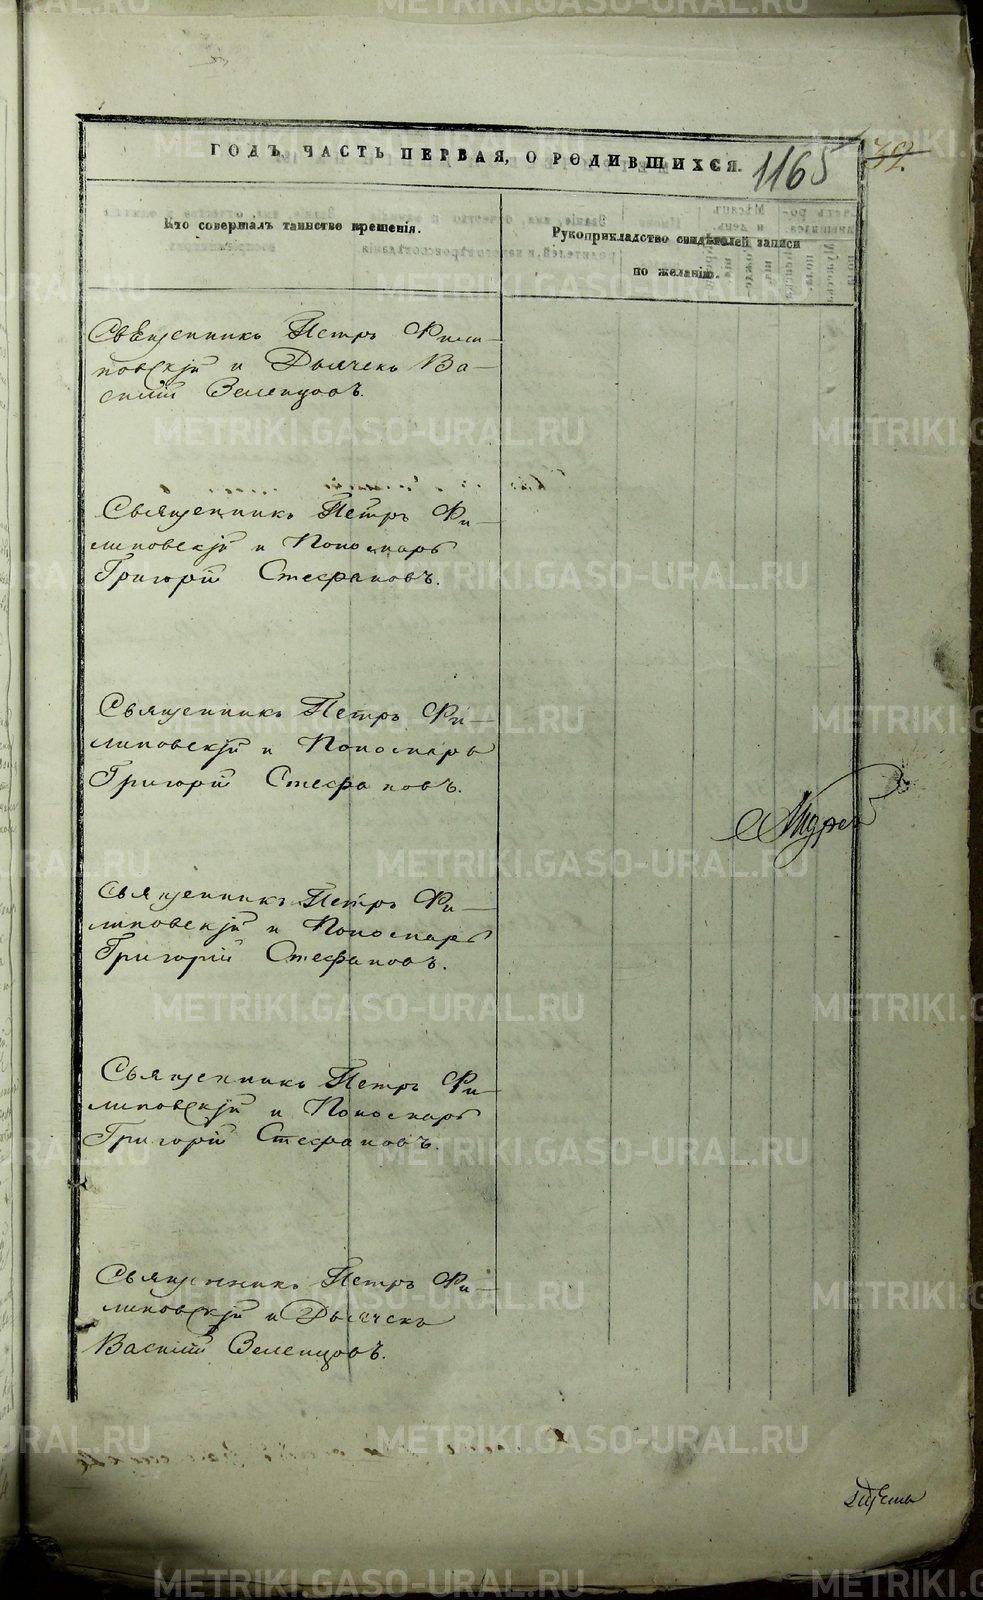 ГОДЪ, ЧАСТЬ ПЕРВАЯ, О РОДИВШИХСЯ.
1165
39.
Кто совершалъ таинство крещенія.
Рукоприкладство свидѣтелей записи
по желанію.
Священникъ Петръ Фили-
повскій и Дьячекъ Ва-
силій Зеленцовъ.
Священникъ Петръ Фи-
липовскій и Пономарь
Григорій Стефановъ.
Священникъ Петръ Фи-
липовскій и Пономарь
Григорій Стефановъ.
Андрей
Священникъ Петръ Фи-
липовскій и Пономарь
Григорій Стефановъ.
Священникъ Петръ Фи-
липовскій и Пономарь
Григорій Стефановъ.
Священникъ Петръ Фи-
липовскій и Дьячекъ
Василій Зеленцовъ.
METRIKI.GASO-URAL.RU